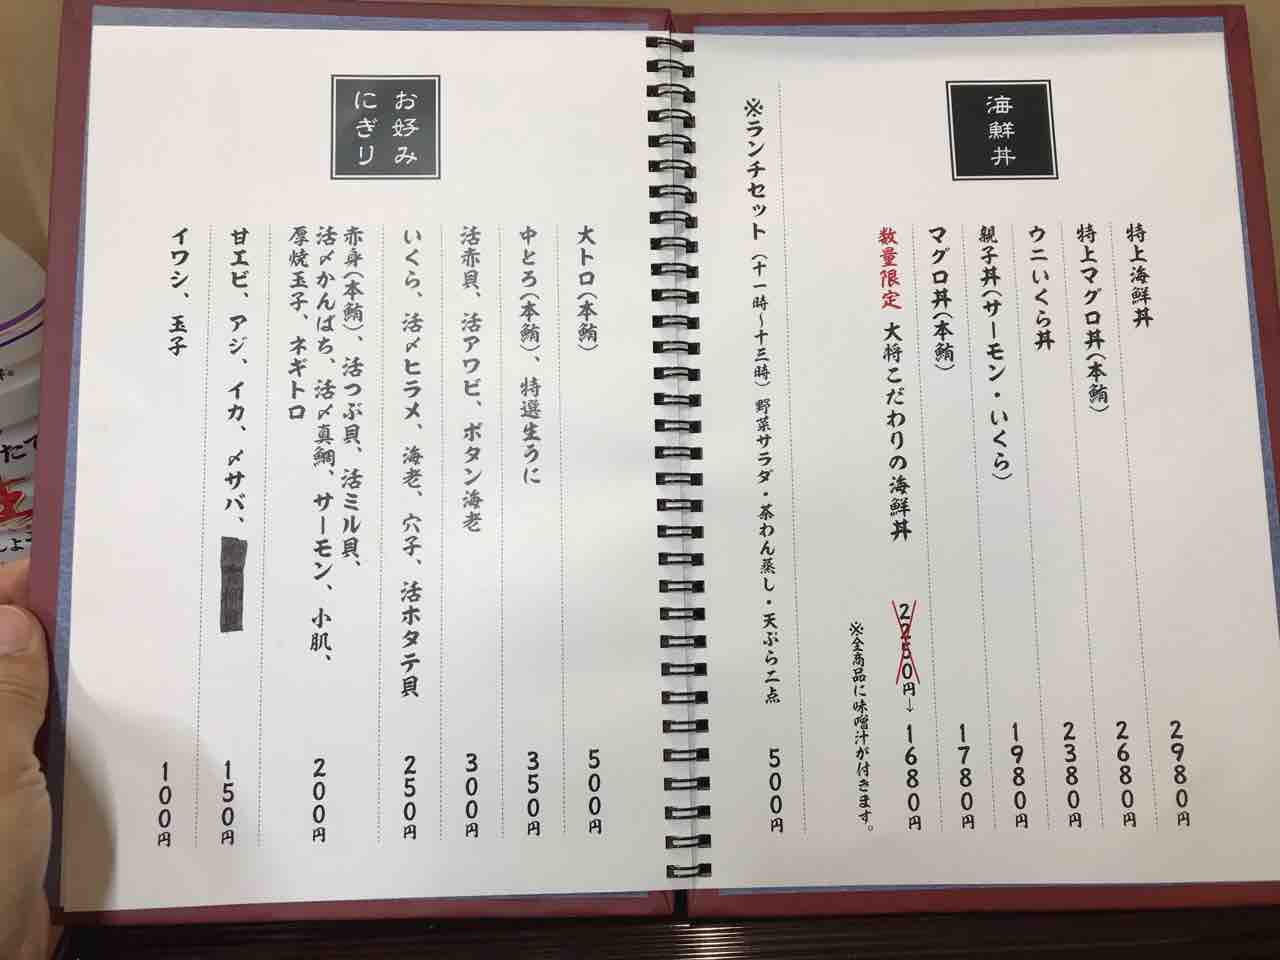 海鮮丼
特上海鮮丼 2980円
特上マグロ丼(本鮪) 2680円
ウニいくら丼 2380円
親子丼(サーモン・いくら) 1980円
マグロ丼(本鮪) 1780円
数量限定 大将こだわりの海鮮丼 2250円→1680円
※全商品に味噌汁が付きます。
※ランチセット(十一時〜十三時)野菜サラダ・茶わん蒸し・天ぷら二点 500円
お好み
にぎり
大トロ(本鮪) 500円
中とろ(本鮪)、特選生うに 350円
活赤貝、活アワビ、ボタン海老 300円
いくら、活〆ヒラメ、海老、穴子、活ホタテ貝 250円
赤身(本鮪)、活つぶ貝、活ミル貝、
活〆かんぱち、活〆真鯛、サーモン、小肌、
厚焼玉子、ネギトロ 200円
甘エビ、アジ、イカ、〆サバ、 150円
イワシ、玉子 100円